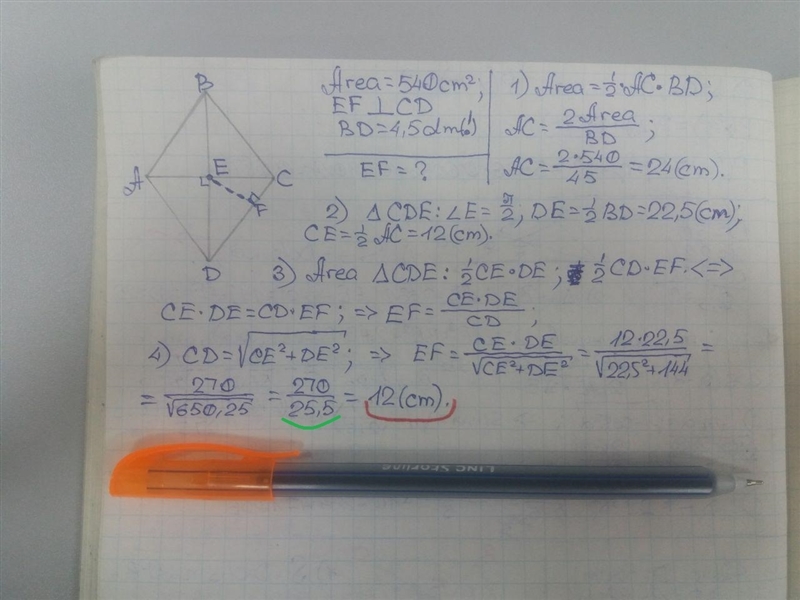 B
A
E
C
F
D
Area = 540 cm²;
EF ⊥ CD
BD = 4,5 dm(!)
EF = ?
1) Area = ½ · AC · BD;
AC = 2 Area / BD ;
AC = 2·540 / 45 = 24 (cm).
2) △ CDE : ∠E = π/2 ; DE = ½ BD = 22,5 (cm);
CE = ½ AC = 12 (cm).
3) Area △CDE : ½ CE · DE ; ½ CD · EF. <=>
CE · DE = CD · EF ; => EF = CE · DE / CD ;
4) CD = √(CE² + DE²) ; => EF = CE · DE / √(CE² + DE²) = 12 · 22,5 / √(22,5² + 144) =
= 270 / √650,25 = 270 / 25,5 = 12 (cm).
LINC